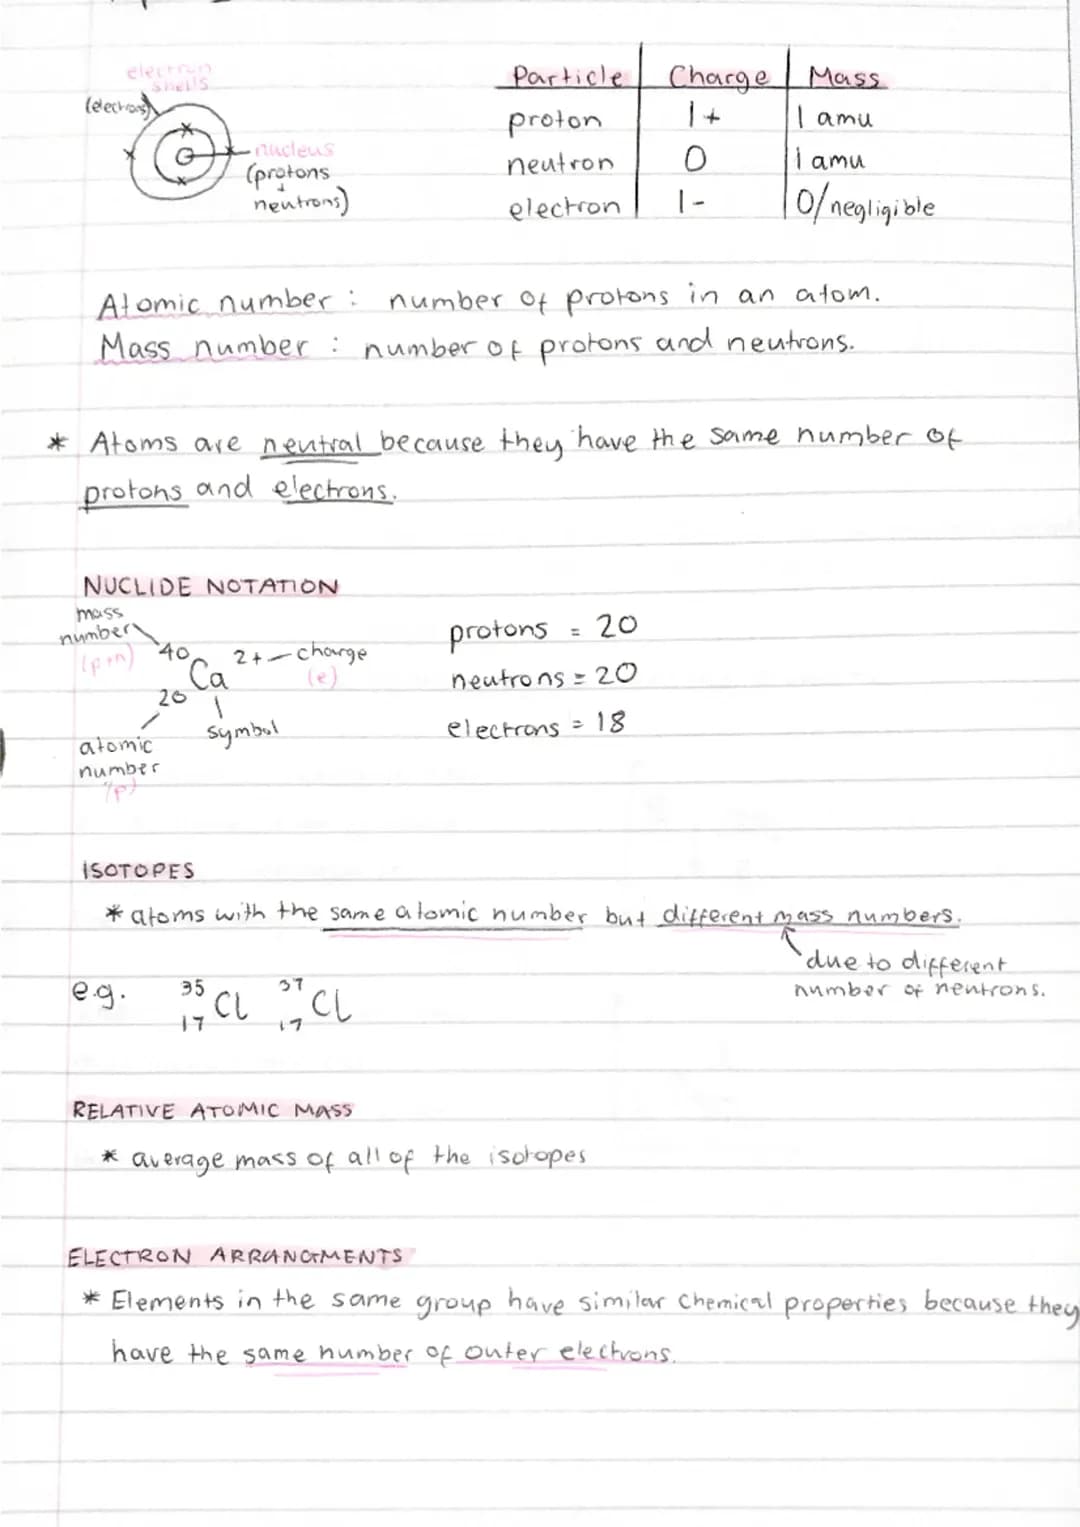 electron
shells
(electrons)
nucleus
(protons
+
neutrons)
Particle Charge Mass
proton 1+ 1 amu
neutron 0 1 amu
electron 1- 0/negligible
Atomic number : number of protons in an atom.
Mass number : number of protons and neutrons.
* Atoms are neutral because they have the same number of
protons and electrons.
NUCLIDE NOTATION
mass
number
(p+n)
40 Ca 2+ charge
(e)
20
symbol
atomic
number
(p)
protons = 20
neutrons = 20
electrons = 18
ISOTOPES
* atoms with the same atomic number but different mass numbers.
due to different
number of neutrons.
e.g. 35 Cl 37 Cl
17 17
RELATIVE ATOMIC MASS
* average mass of all of the isotopes
ELECTRON ARRANGMENTS
* Elements in the same group have similar chemical properties because they
have the same number of outer electrons.